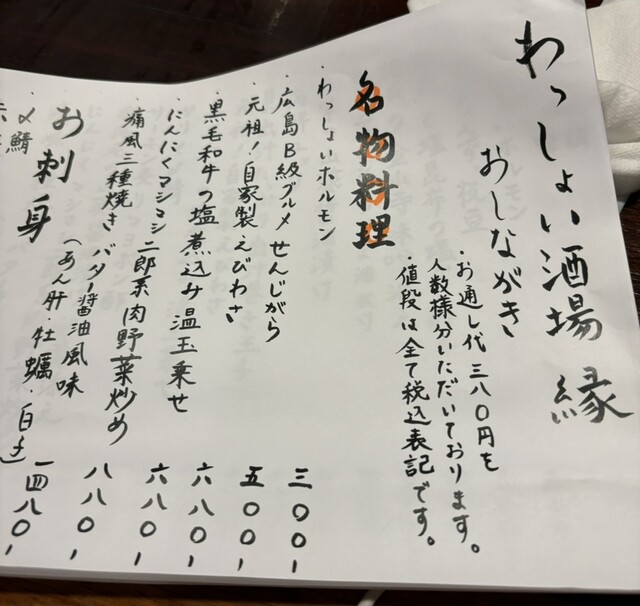 わっしょい酒場 縁
おしながき
・お通し代 三八〇円を
人数様分いただいております。
・値段は全て税込表記です。
名物料理
・わっしょいホルモン 三〇〇-
・広島B級グルメ せんじがら 五〇〇-
・元祖!自家製えびわさ 六八〇-
・黒毛和牛の塩煮込み温玉乗せ 六八〇-
・にんにくマシマシ二郎系肉野菜炒め 八八〇-
痛風三種焼き バター醤油風味
(あん肝・牡蠣・白子) 一四八〇-
お刺身
・〆鯖